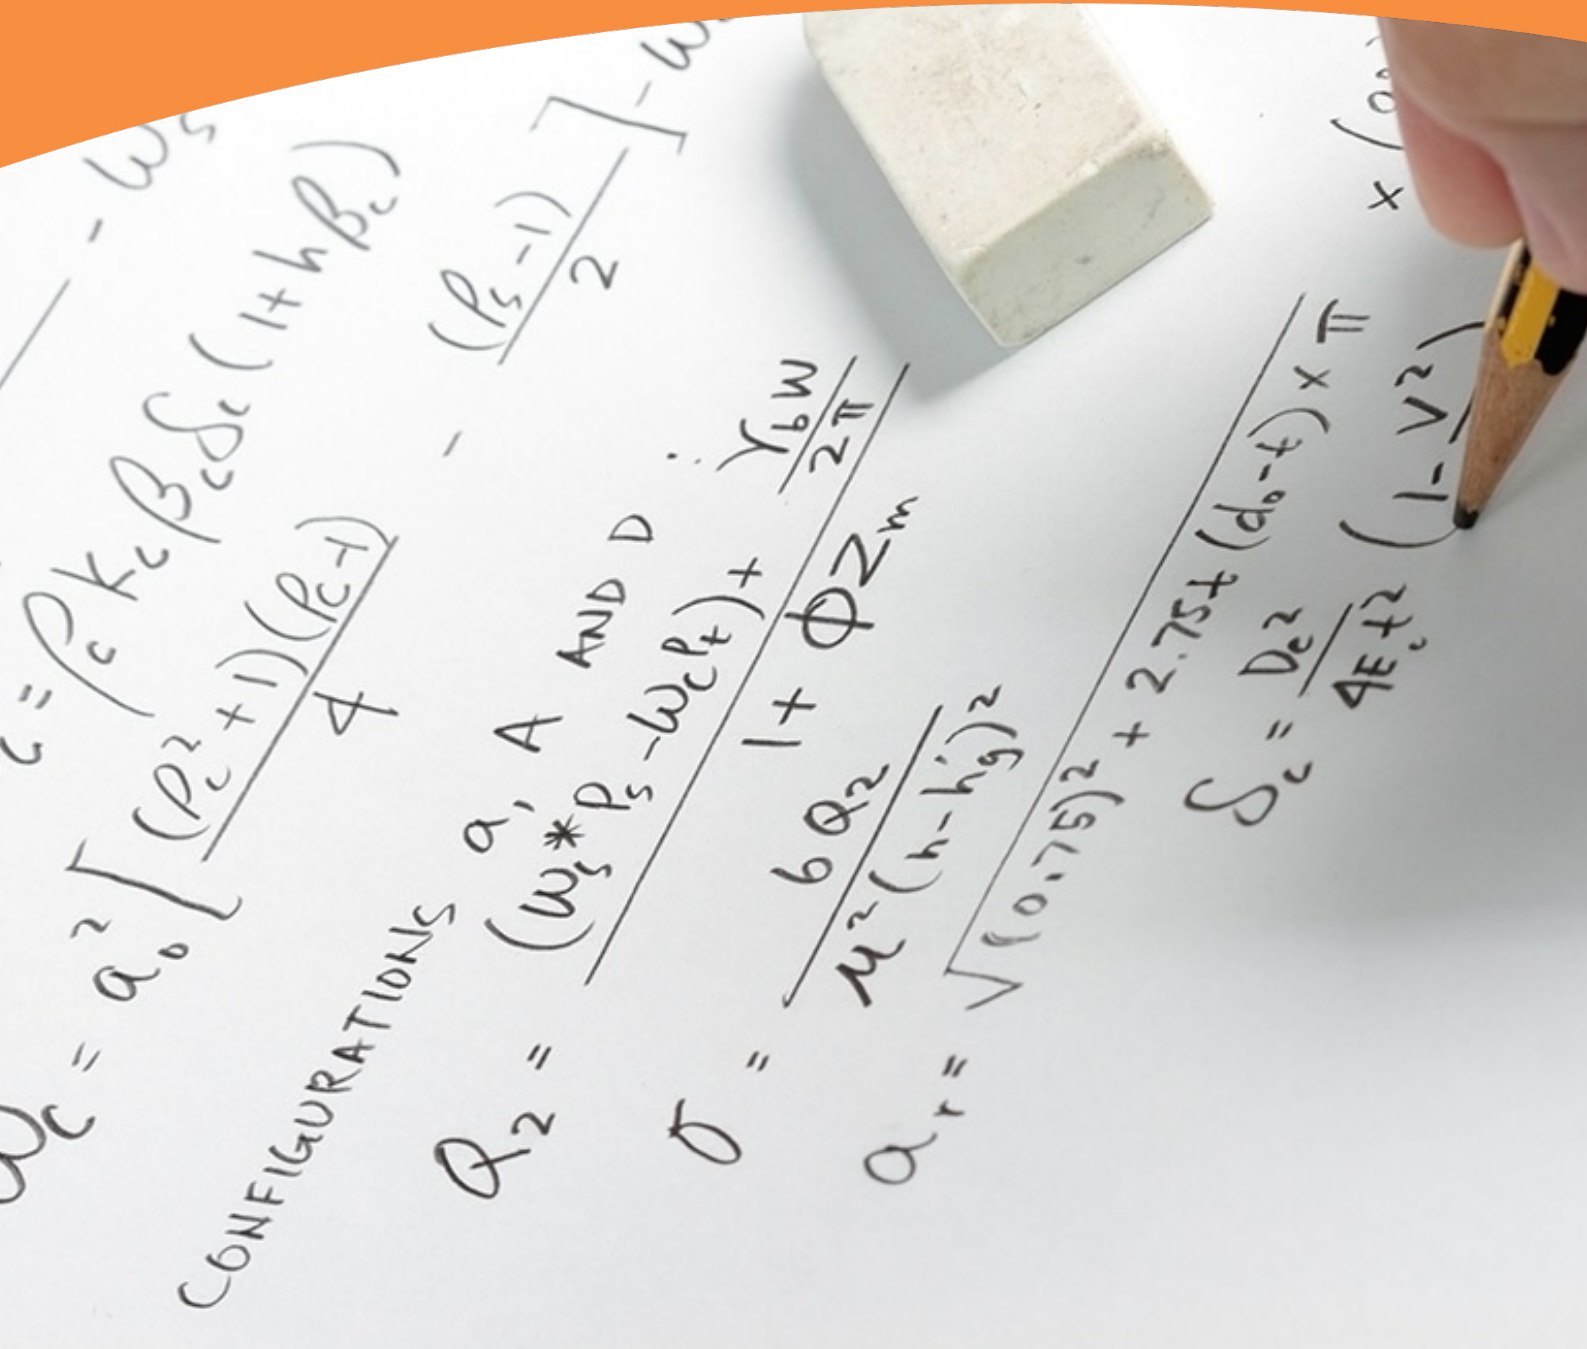 - ω_s
= ρ_c K_c β_c δ_c (1+hβ_c)
ω_c = a_o^2 [ (ρ_c^2+1)(ρ_c-1) / 4 - (ρ_s-1) / 2 ] - ω
CONFIGURATIONS a, A AND D :
Q_2 = ((ω_s* ρ_s - ω_c ρ_t) + γ_b W / 2π) / (1+ φZ_m)
σ = 6Q_2 / μ^2 (h-h_g)^2
a_r = √((0.75)^2 + 2.75t (d_o-t) × π)
δ_c = D_c^2 / 4E_c t^2 (1-ν^2) × (